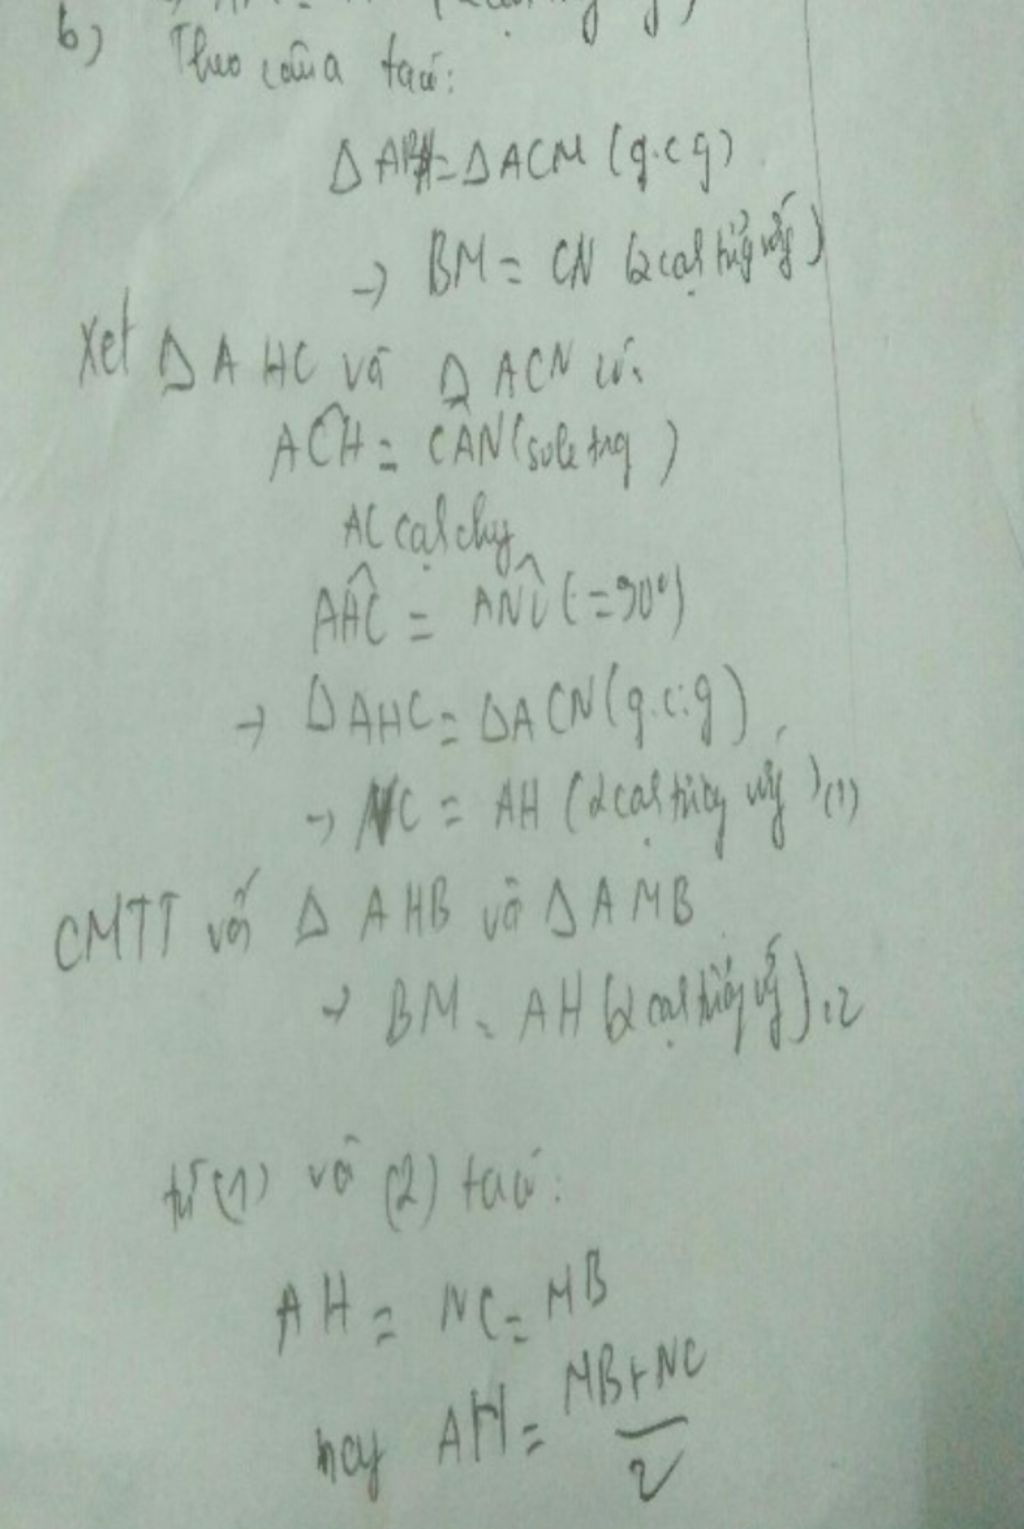 b) Theo câu a ta có:
Δ ABM = Δ ACN (g.c.g)
→ BM = CN (2 cạh tứg ứg)
Xet Δ A HC và Δ ACN có:
ACH = CAN (sole trg )
AC cạh chg
AHC = ANC (=90°)
→ Δ AHC = Δ ACN (g.c.g)
→ NC = AH (2 cạh tứg ứg ) (1)
CMTT với Δ A HB và Δ A MB
→ BM = AH (2 cạh tứg ứg) (2
từ (1) và (2) ta có:
AH = NC = MB
hay AH = MB+NC
2